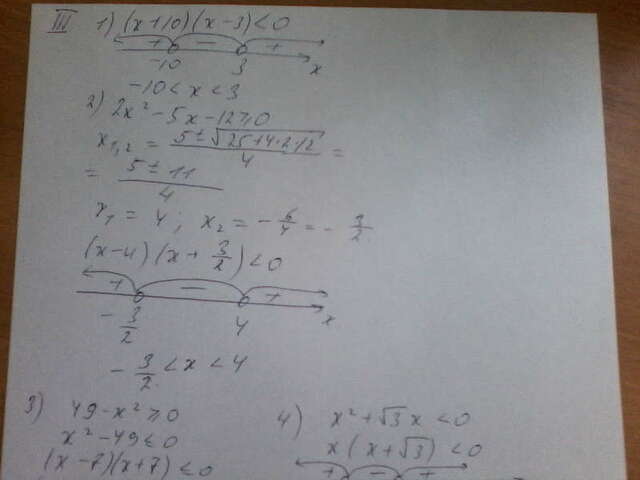 III 1) (x+10)(x-3)<0
+ - +
-10 3 x
-10<x<3
2) 2x² - 5x - 12≥0
x₁,₂ = (5±√(25+4·2·12))/4 =
= (5±11)/4
x₁ = 4; x₂ = -6/4 = -3/2.
(x-4)(x+3/2)<0
+ - +
-3/2 4 x
-3/2<x<4
3) 49-x²≥0
x²-49≤0
(x-7)(x+7)≤0
4) x²+√3x<0
x(x+√3)<0
+ - +